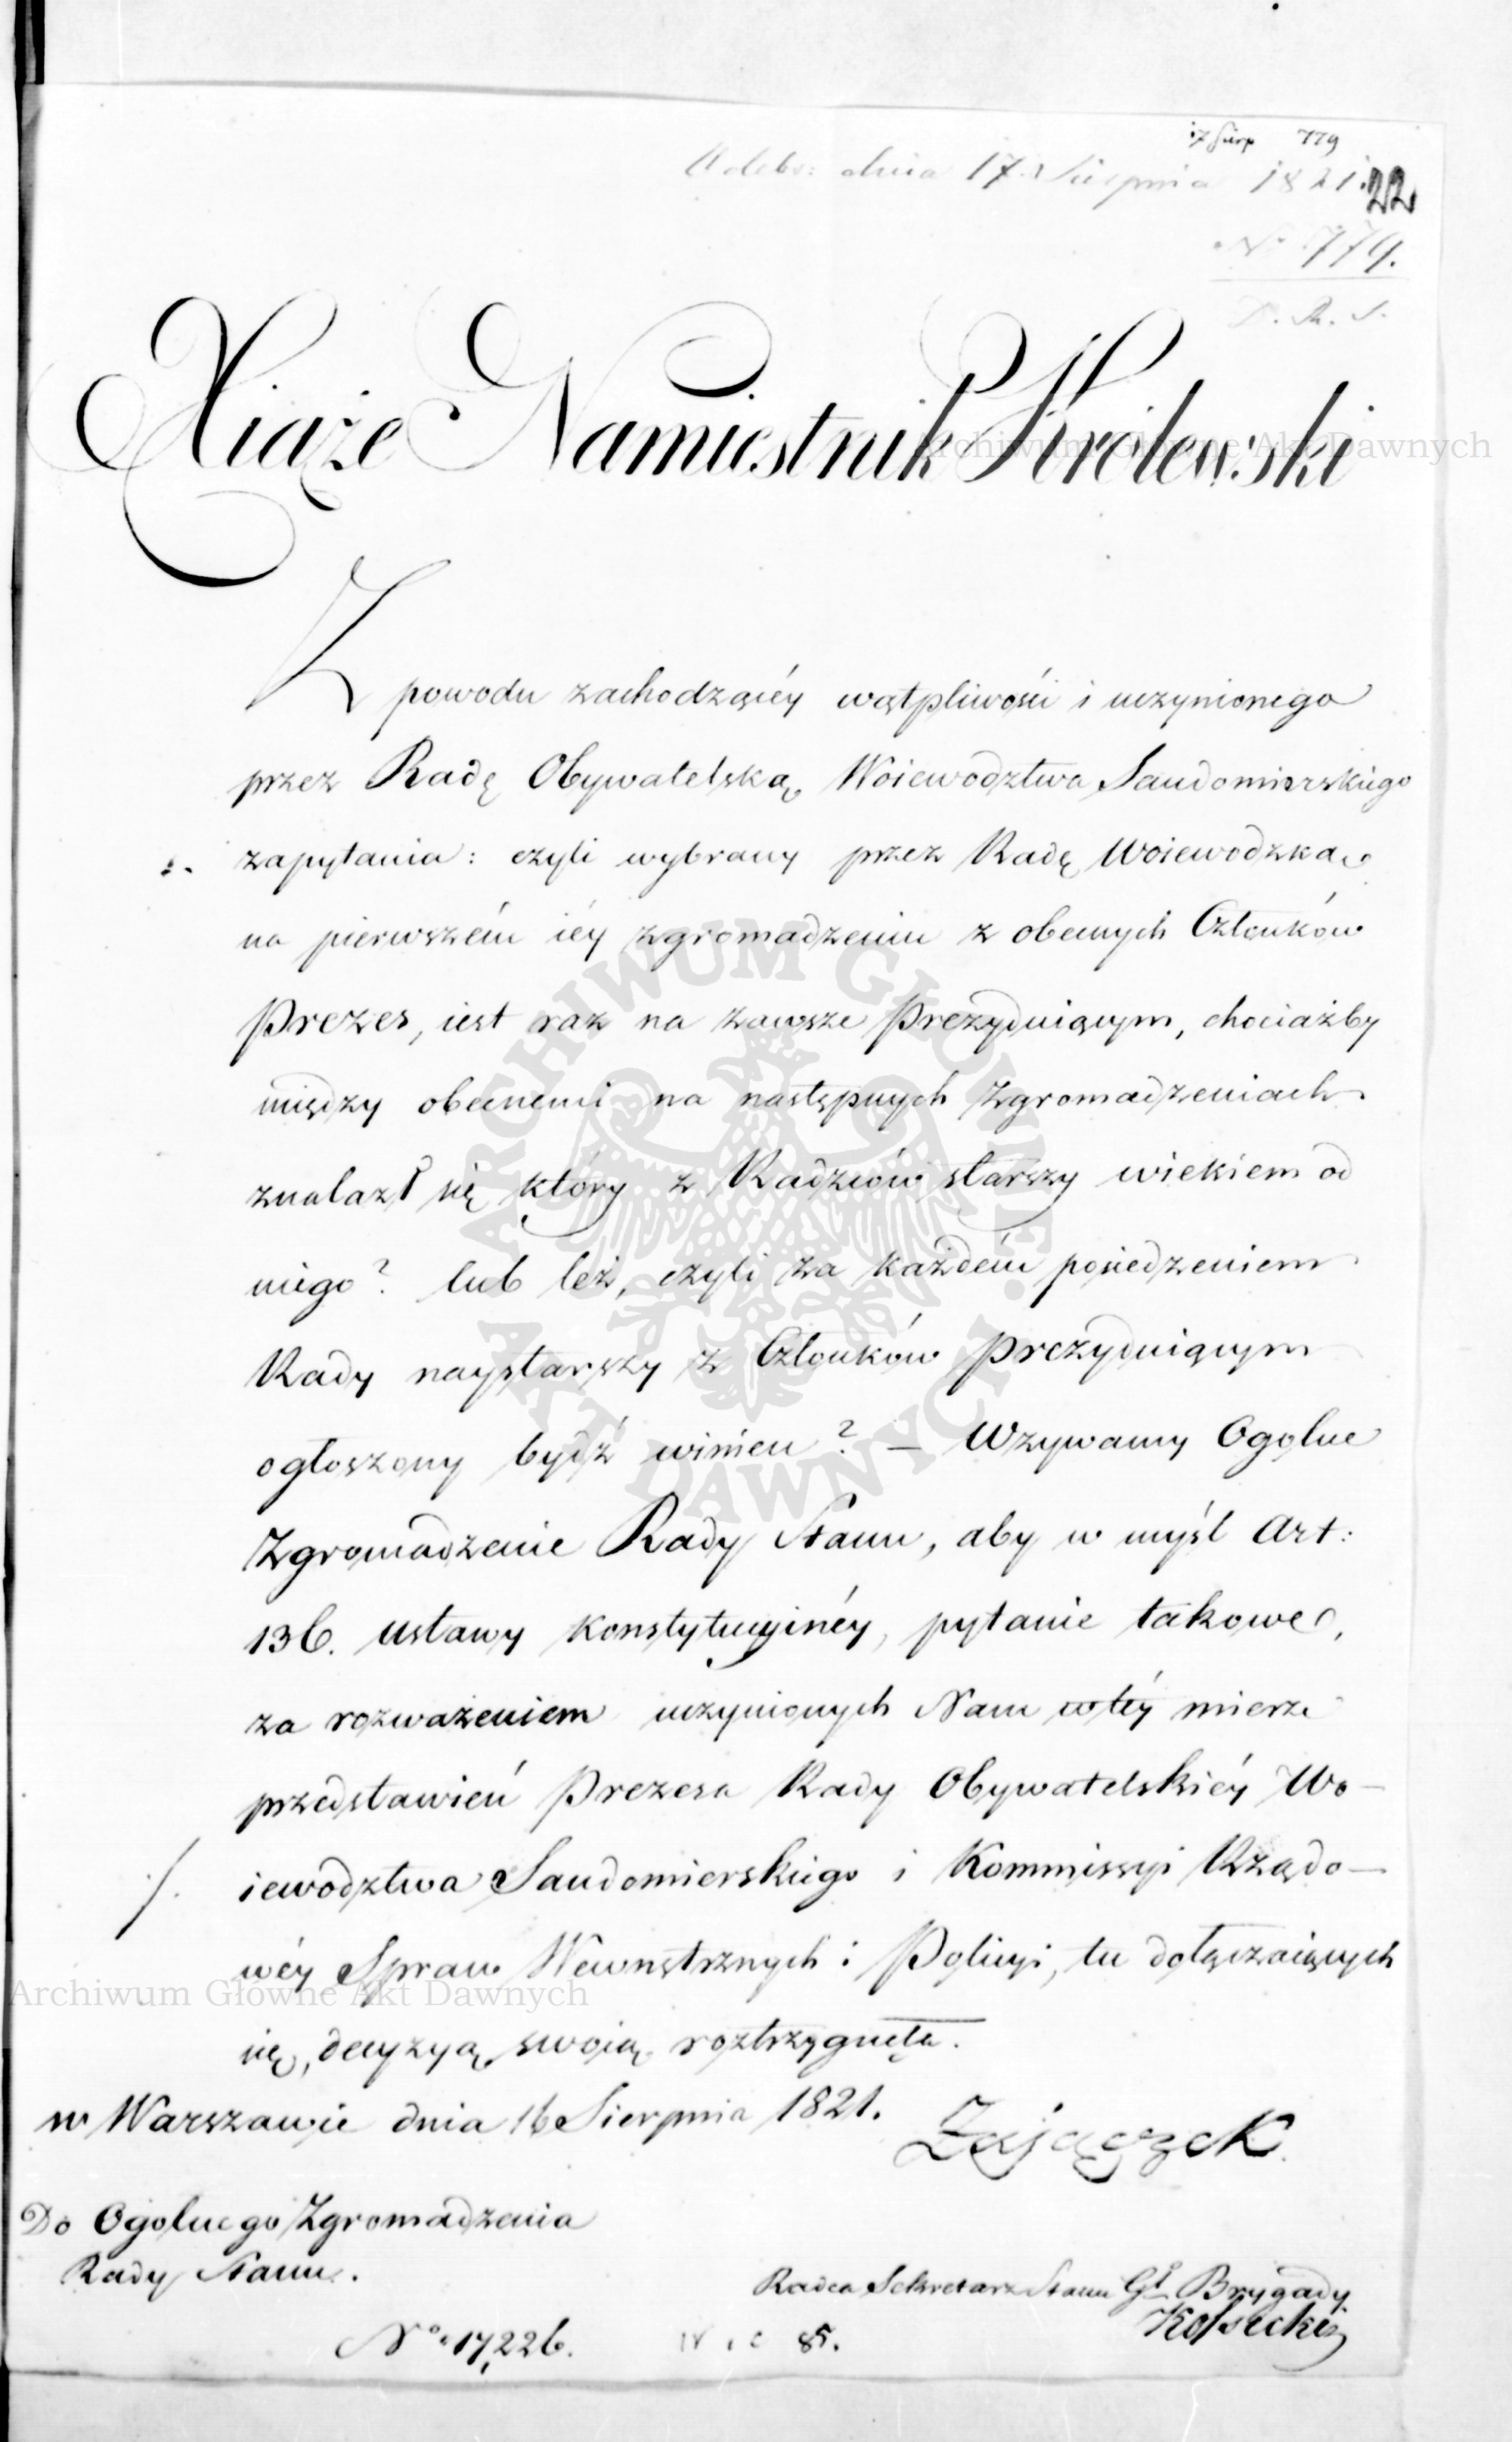 17 Sierp 779
Odebr: dnia 17. Sierpnia 1821.
22
No 779.
Xiąże Namiestnik Królewski
Z powodu zachodzącéy wątpliwości i uczynionego
przez Radę Obywatelską Woiewodztwa Sandomierskiego
zapytania: czyli wybrany przez Radę Woiewodzką
na pierwszém iéy zgromadzeniu z obecnych Członków
Prezes, iest raz na zawsze Prezyduiącym, chociażby
między obecnemi na następnych Zgromadzeniach
znalazł się który z Radzców starszy wiekiem od
niego? lub też, czyli za każdém posiedzeniem
Rady naystarszy z Członków Prezyduiącym
ogłoszony bydź winien? — Wzywamy Ogólne
Zgromadzenie Rady Stanu, aby w myśl Art:
136. Ustawy Konstytucyinéy, pytanie takowe,
za rozważeniem uczynionych Nam wtéy mierze
przedstawień Prezesa Rady Obywatelskiéy Wo-
iewodztwa Sandomierskiego i Kommissyi Rządo-
wéy Spraw Wewnętrznych i Policyi, tu dołączaiących
się, decyzyą swoią roztrzygnęła.
w Warszawie dnia 16 Sierpnia 1821.
Zajączek
Do Ogolnego Zgromadzenia
Rady Stanu.
Radca Sekretarz Stanu Gł Brygady
Kossecki
No 17,226.
85.
Archiwum Główne Akt Dawnych
ARCHIWUM GŁÓWNE AKT DAWNYCH
Archiwum Główne Akt Dawnych